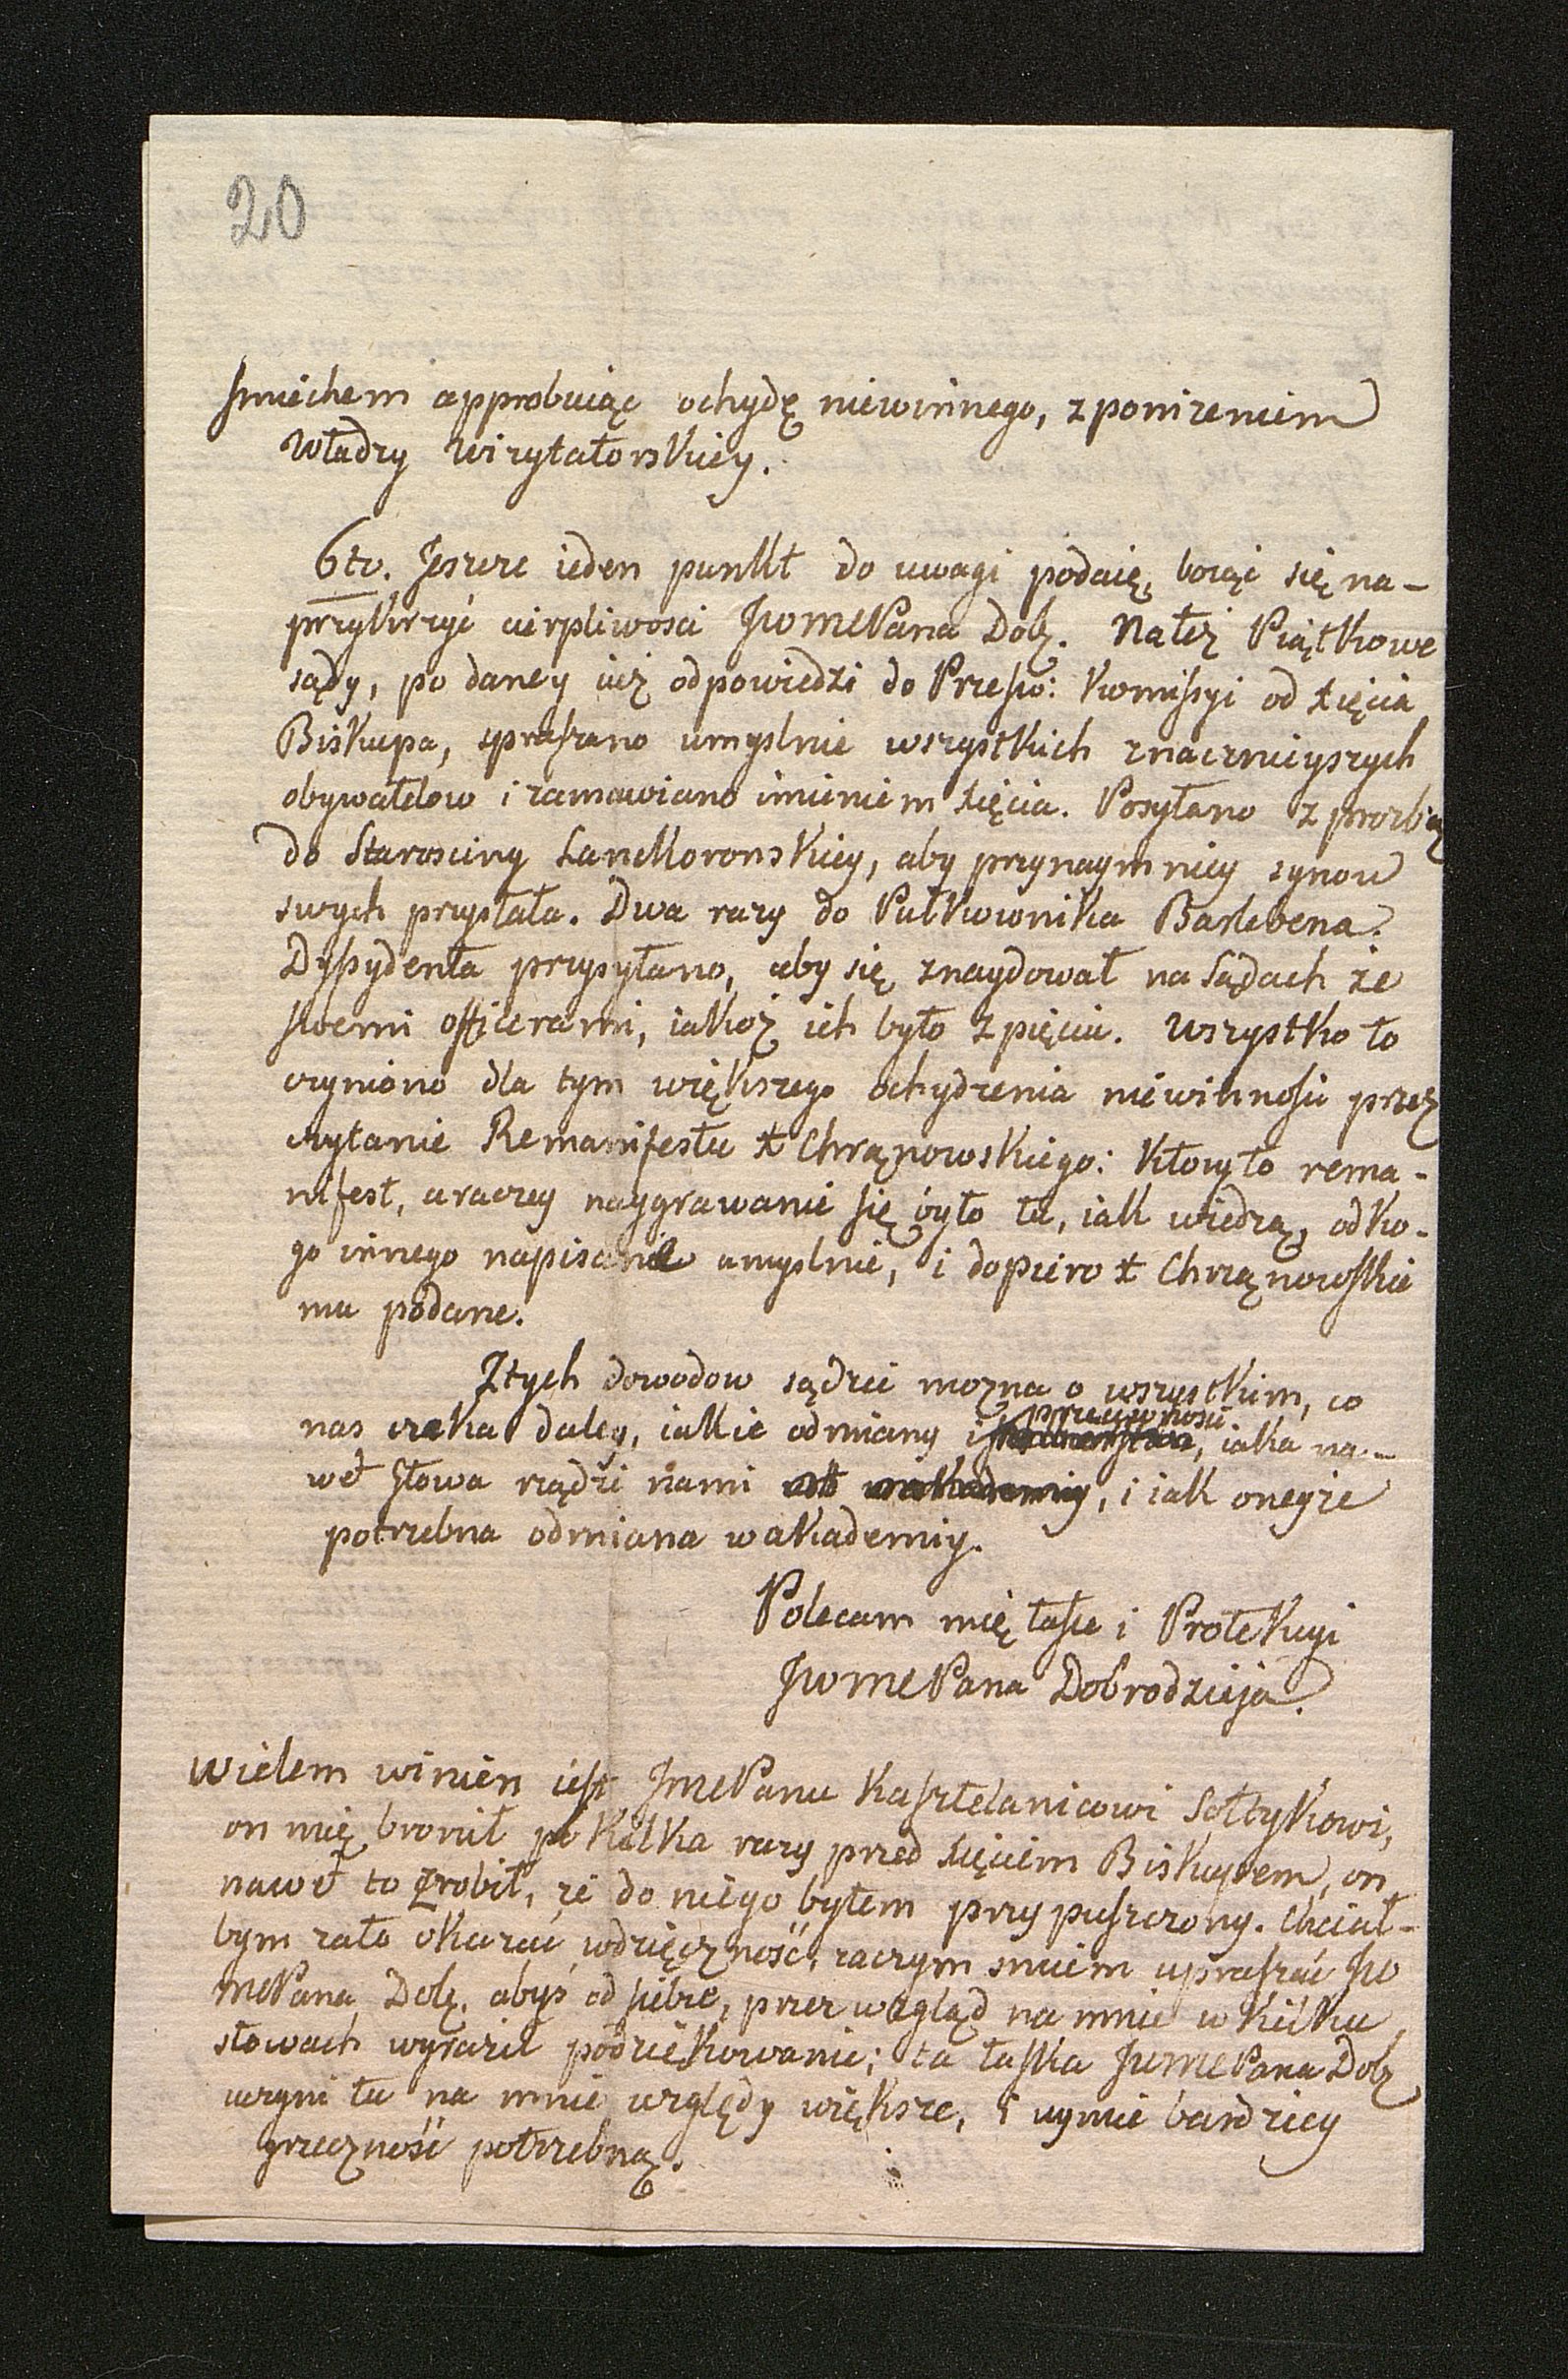 20
smiechem approbuiąc ochydę niewinnego, z poniżeniem
władzy wizytatorskiey.
6to. Jeszcze ieden punkt do uwagi podaię, boiąc się na-
przykrzyć cierpliwosci JWOMCPana Dobr. Na też Piątkowe
sądy, po daney iuż odpowiedzi do Przeswo: Kommissyi od Xięcia
Biskupa, spraszano umyslnie wszystkich znacznieyszych
obywatelow i zamawiano imieniem Xięcia. Posyłano z prozbą
do Starosciny Lanckoronskiey, aby przynaymniey synow
swych przysłała. Dwa razy do Pułkownika Barlebena
Dyssydenta przysyłano, aby się znaydował na Sądach ze
swemi officerami, iakoż ich było z pięciu. Wszystko to
czyniono dla tym większego ochydzenia niewinnosci przez
czytanie Remanifestu X Chrząnowskiego: ktory to rema-
nifest, a raczey naygrawanie się było tu, iak wiedzą, od ko-
go innego napisane umyslnie, i dopiero X Chrząnowskie
mu podane.
Z tych dowodow sądzić można o wszystkim, co
nas czeka daley, iakie odmiany i przeciwnosci, iaka na-
wet głowa rządzi nami, i iak oneyże
potrzebna odmiana w akademiy.
Polecam mię łasce i Protekcyi
JWOMCPana Dobrodzieja.
Wielem winien iest JMCPanu Kasztelanicowi Sołtykowi,
on mię bronił po kilka razy przed Xięciem Biskupem, on
nawet to zrobił, że do niego byłem przypuszczony. Chciał-
bym zato okazać wdzięczność, zaczym smiem upraszać JWO
MCPana Dobr. abyś od siebie, przez wzgląd na mnie w kilku
słowach wyraził podziękowanie; ta łaska JWOMCPana Dobr
uczyni tu na mnie względy większe, i uymie bardziey
grzeczność potrzebną.